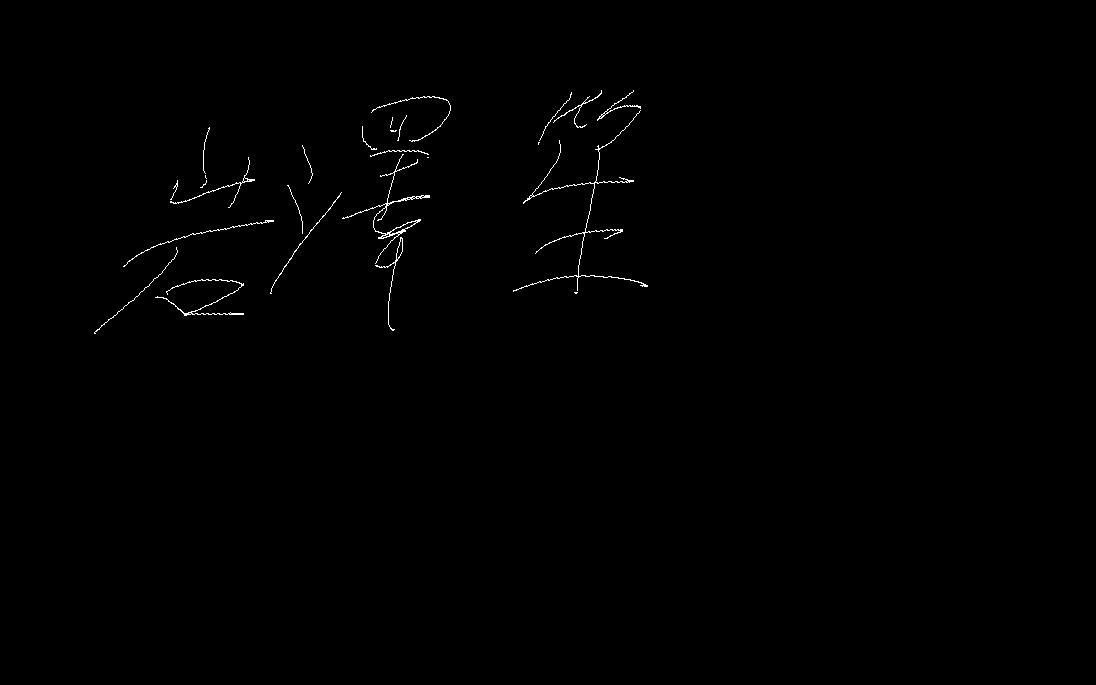 岩澤 笙